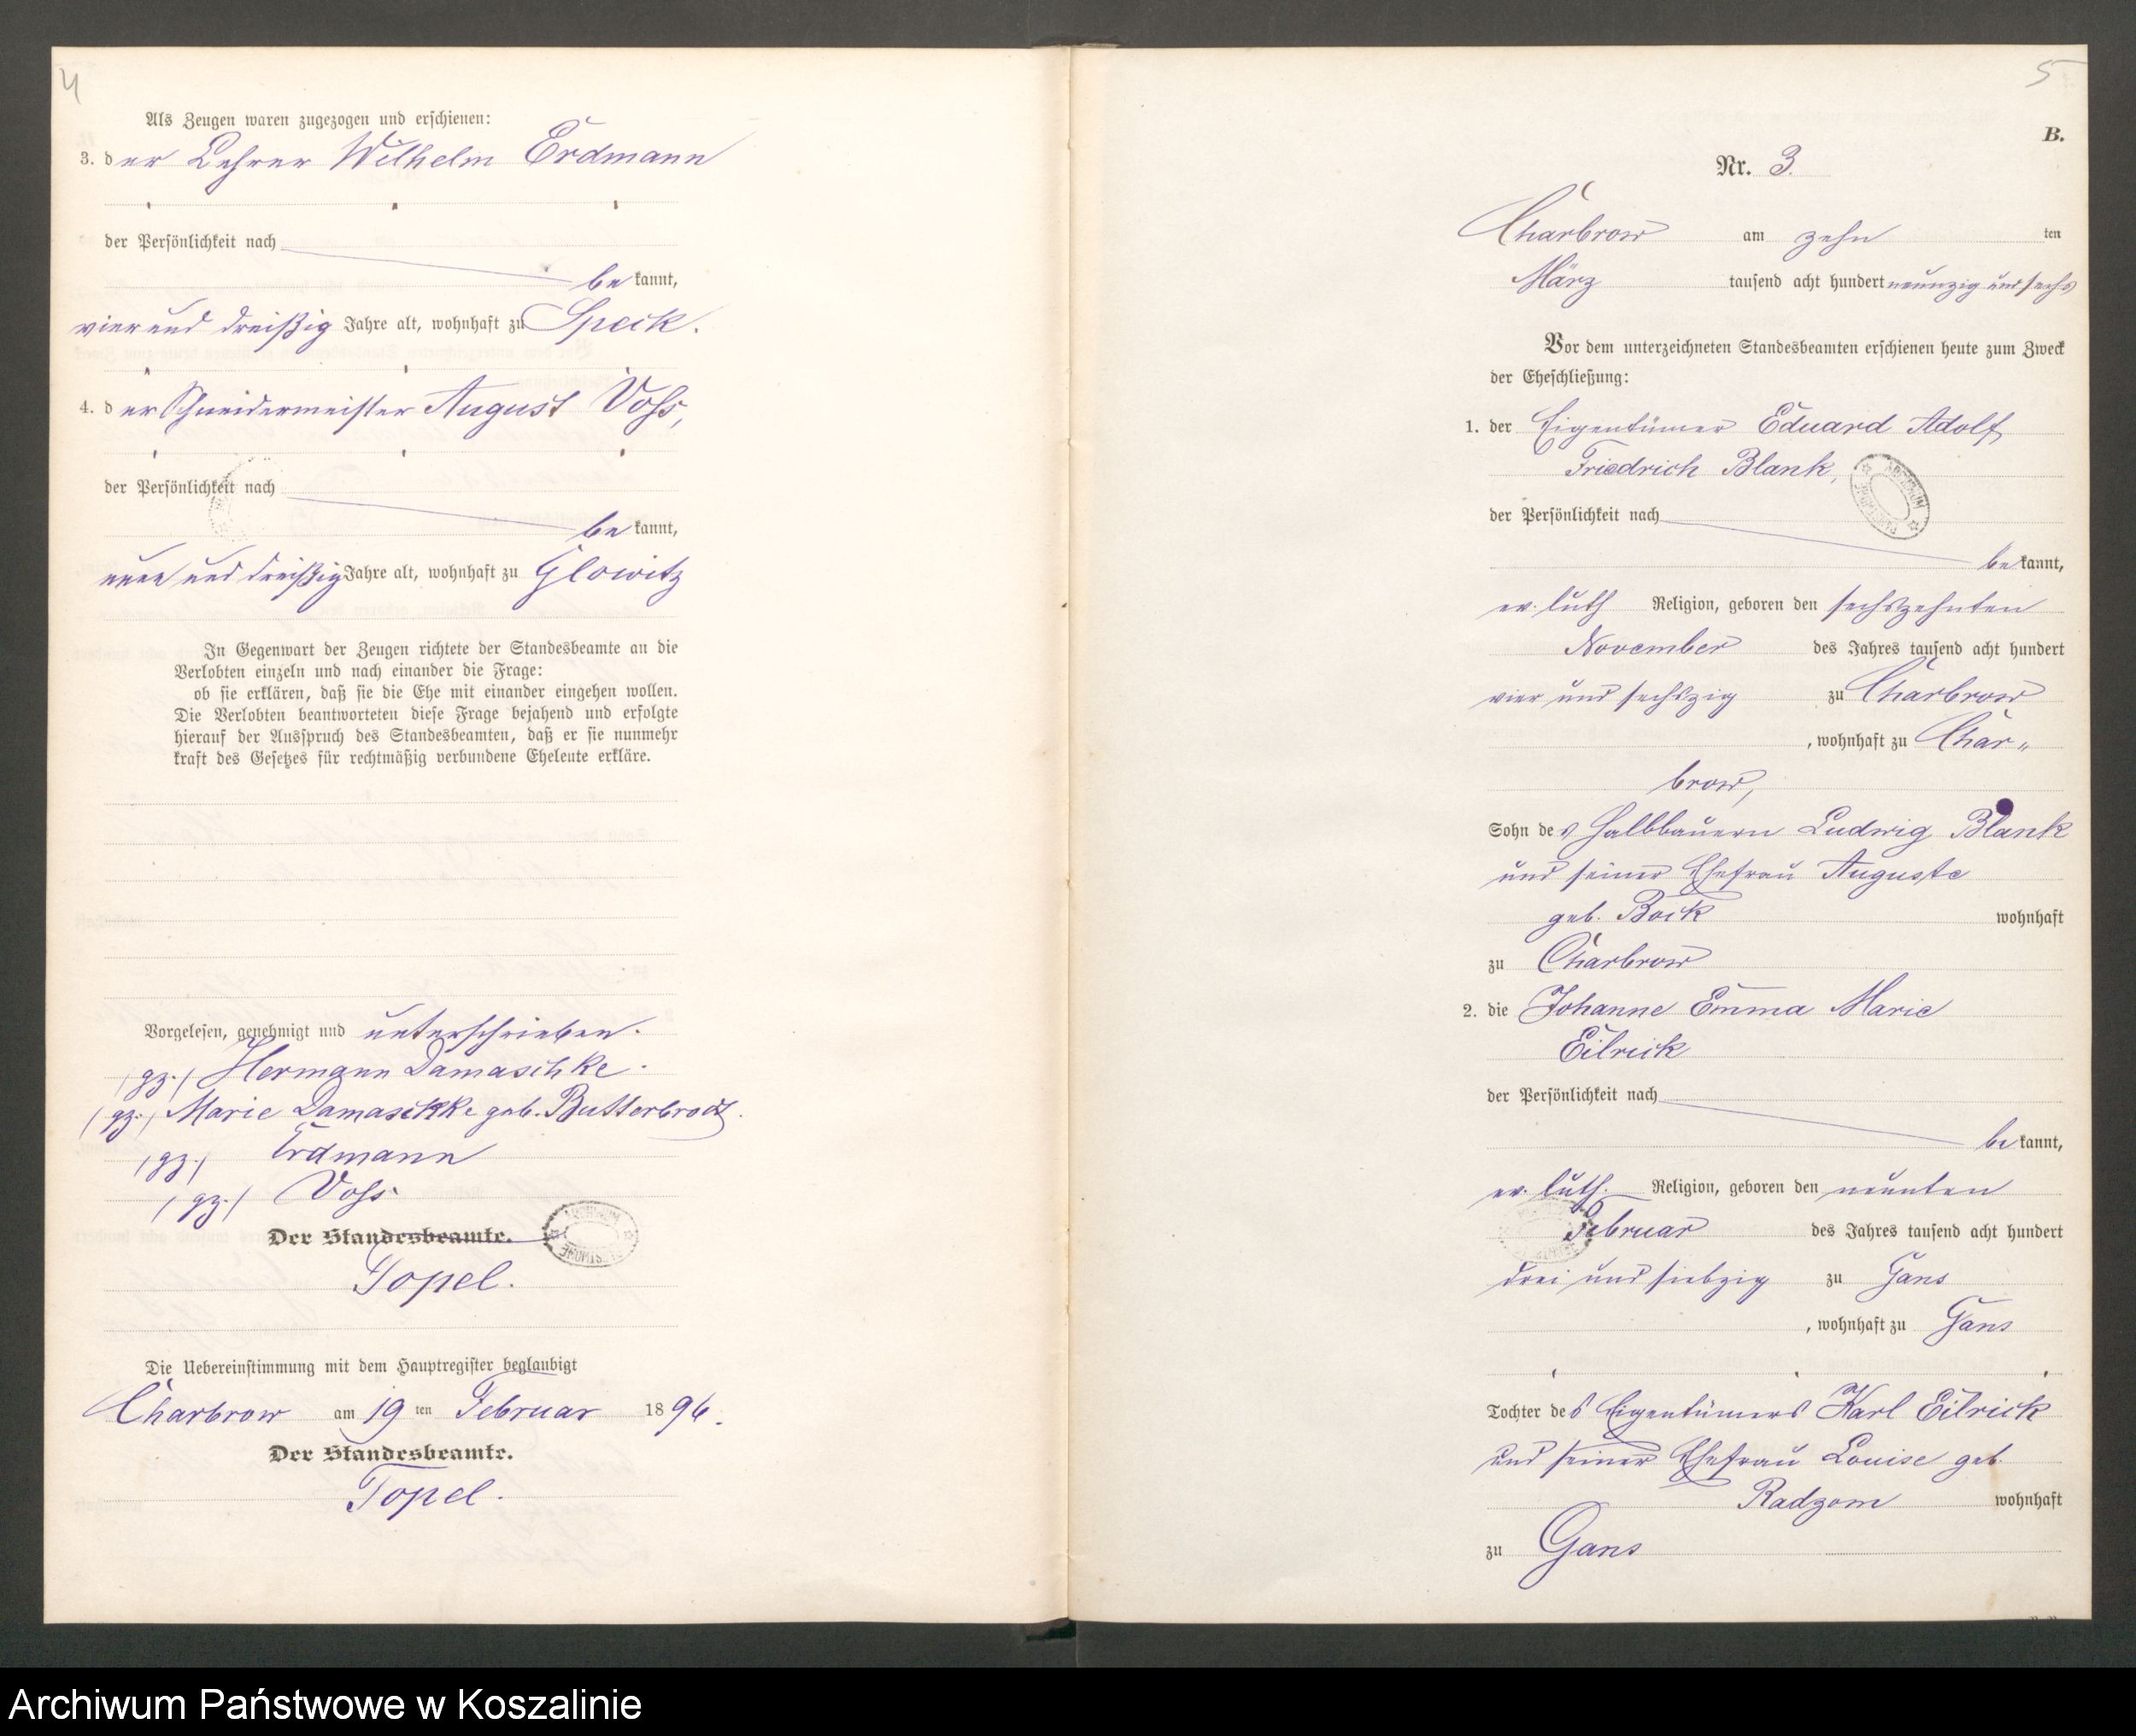 4
Als Zeugen waren zugezogen und erschienen:
3. der Lehrer Wilhelm Erdmann
der Persönlichkeit nach
bekannt,
vier und dreißig Jahre alt, wohnhaft zu Speck.
4. der Schneidermeister August Voss,
der Persönlichkeit nach
bekannt,
neun und dreißig Jahre alt, wohnhaft zu Glowitz
In Gegenwart der Zeugen richtete der Standesbeamte an die
Verlobten einzeln und nach einander die Frage:
ob sie erklären, daß sie die Ehe mit einander eingehen wollen.
Die Verlobten beantworteten diese Frage bejahend und erfolgte
hierauf der Ausspruch des Standesbeamten, daß er sie nunmehr
kraft des Gesetzes für rechtmäßig verbundene Eheleute erkläre.
Vorgelesen, genehmigt und unterschrieben.
(gz.) Hermann Damaschke.
(gz.) Marie Damaschke geb. Butterbrodt.
(gz.) Erdmann
(gz.) Voss
Der Standesbeamte.
Topel.
Die Uebereinstimmung mit dem Hauptregister beglaubigt
Charbrow am 19 ten Februar 1896.
Der Standesbeamte.
Topel.
5
B.
Nr. 3.
Charbrow am zehn ten
März tausend acht hundert neunzig und sechs
Vor dem unterzeichneten Standesbeamten erschienen heute zum Zweck
der Eheschließung:
1. der Eigentümer Eduard Adolf
Friedrich Blank,
der Persönlichkeit nach
bekannt,
ev. luth Religion, geboren den sechszehnten
November des Jahres tausend acht hundert
vier und sechszig zu Charbrow
, wohnhaft zu Char„
brow,
Sohn des Halbbauern Ludwig Blank
und seiner Ehefrau Auguste
geb. Bock wohnhaft
zu Charbrow
2. die Johanne Emma Marie
Eilrick
der Persönlichkeit nach
bekannt,
ev. luth. Religion, geboren den neunten
Februar des Jahres tausend acht hundert
drei und siebzig zu Gans
, wohnhaft zu Gans
Tochter des Eigentümers Karl Eilrick
und seiner Ehefrau Louise geb.
Radzom wohnhaft
zu Gans
Archiwum Państwowe w Koszalinie